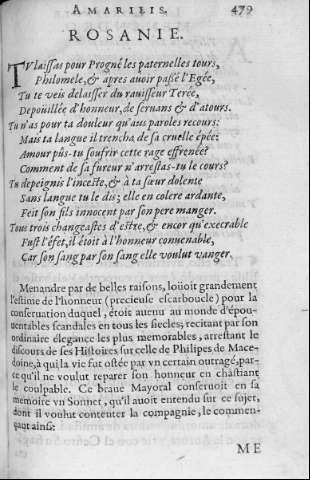 AMARILIS. 479
ROSANIE.
TV laissas pour Progné les paternelles tours,
Philomele, & apres auoir passé l'Egée,
Tu te veis delaisser du rauisseur Terée,
Depoüillée d'honneur, de seruans & d'atours.
Tu n'as pour ta douleur qu'aus paroles recours:
Mais ta langue il trencha de sa cruelle épée:
Amour pûs-tu soufrir cette rage effrenée?
Comment de sa fureur n'arrestas-tu le cours?
Tu depeignis l'inceste, & à ta sœur dolente
Sans langue tu le dis; elle en colere ardante,
Feit son fils innocent par son pere manger.
Tous trois changeastes d'estre, & encor qu'execrable
Fust l'éfet, il étoit à l'honneur conuenable,
Car son sang par son sang elle voulut vanger.
Menandre par de belles raisons, loüoit grandement
l'estime de l'honneur (precieuse escarboucle) pour la
conseruation duquel, étois auenu au monde d'épou-
uentables scandales en tous les siecles; recitant par son
ordinaire élegance les plus memorables, arrestant le
discours de ses Histoires sur celle de Philipes de Mace-
doine, à qui la vie fut ostée par vn certain outragé, par-
ce qu'il ne voulut reparer son honneur en châstiant
le coulpable. Ce braue Mayoral conseruoit en sa
memoire vn Sonnet, qu'il auoit entendu sur ce sujet,
dont il voulut contenter la compagnie, le commen-
çant ainsi:
ME